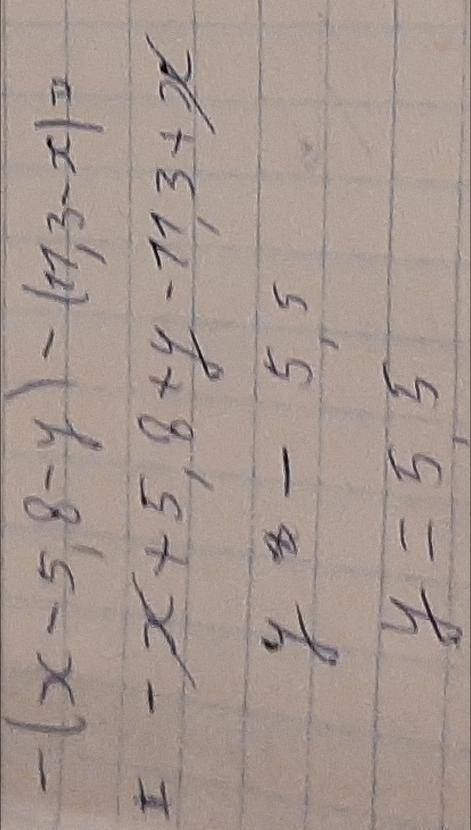 -(x-5,8-y)-(11,3-x)=
= -x+5,8+y-11,3+x
y - 5,5
y = 5,5